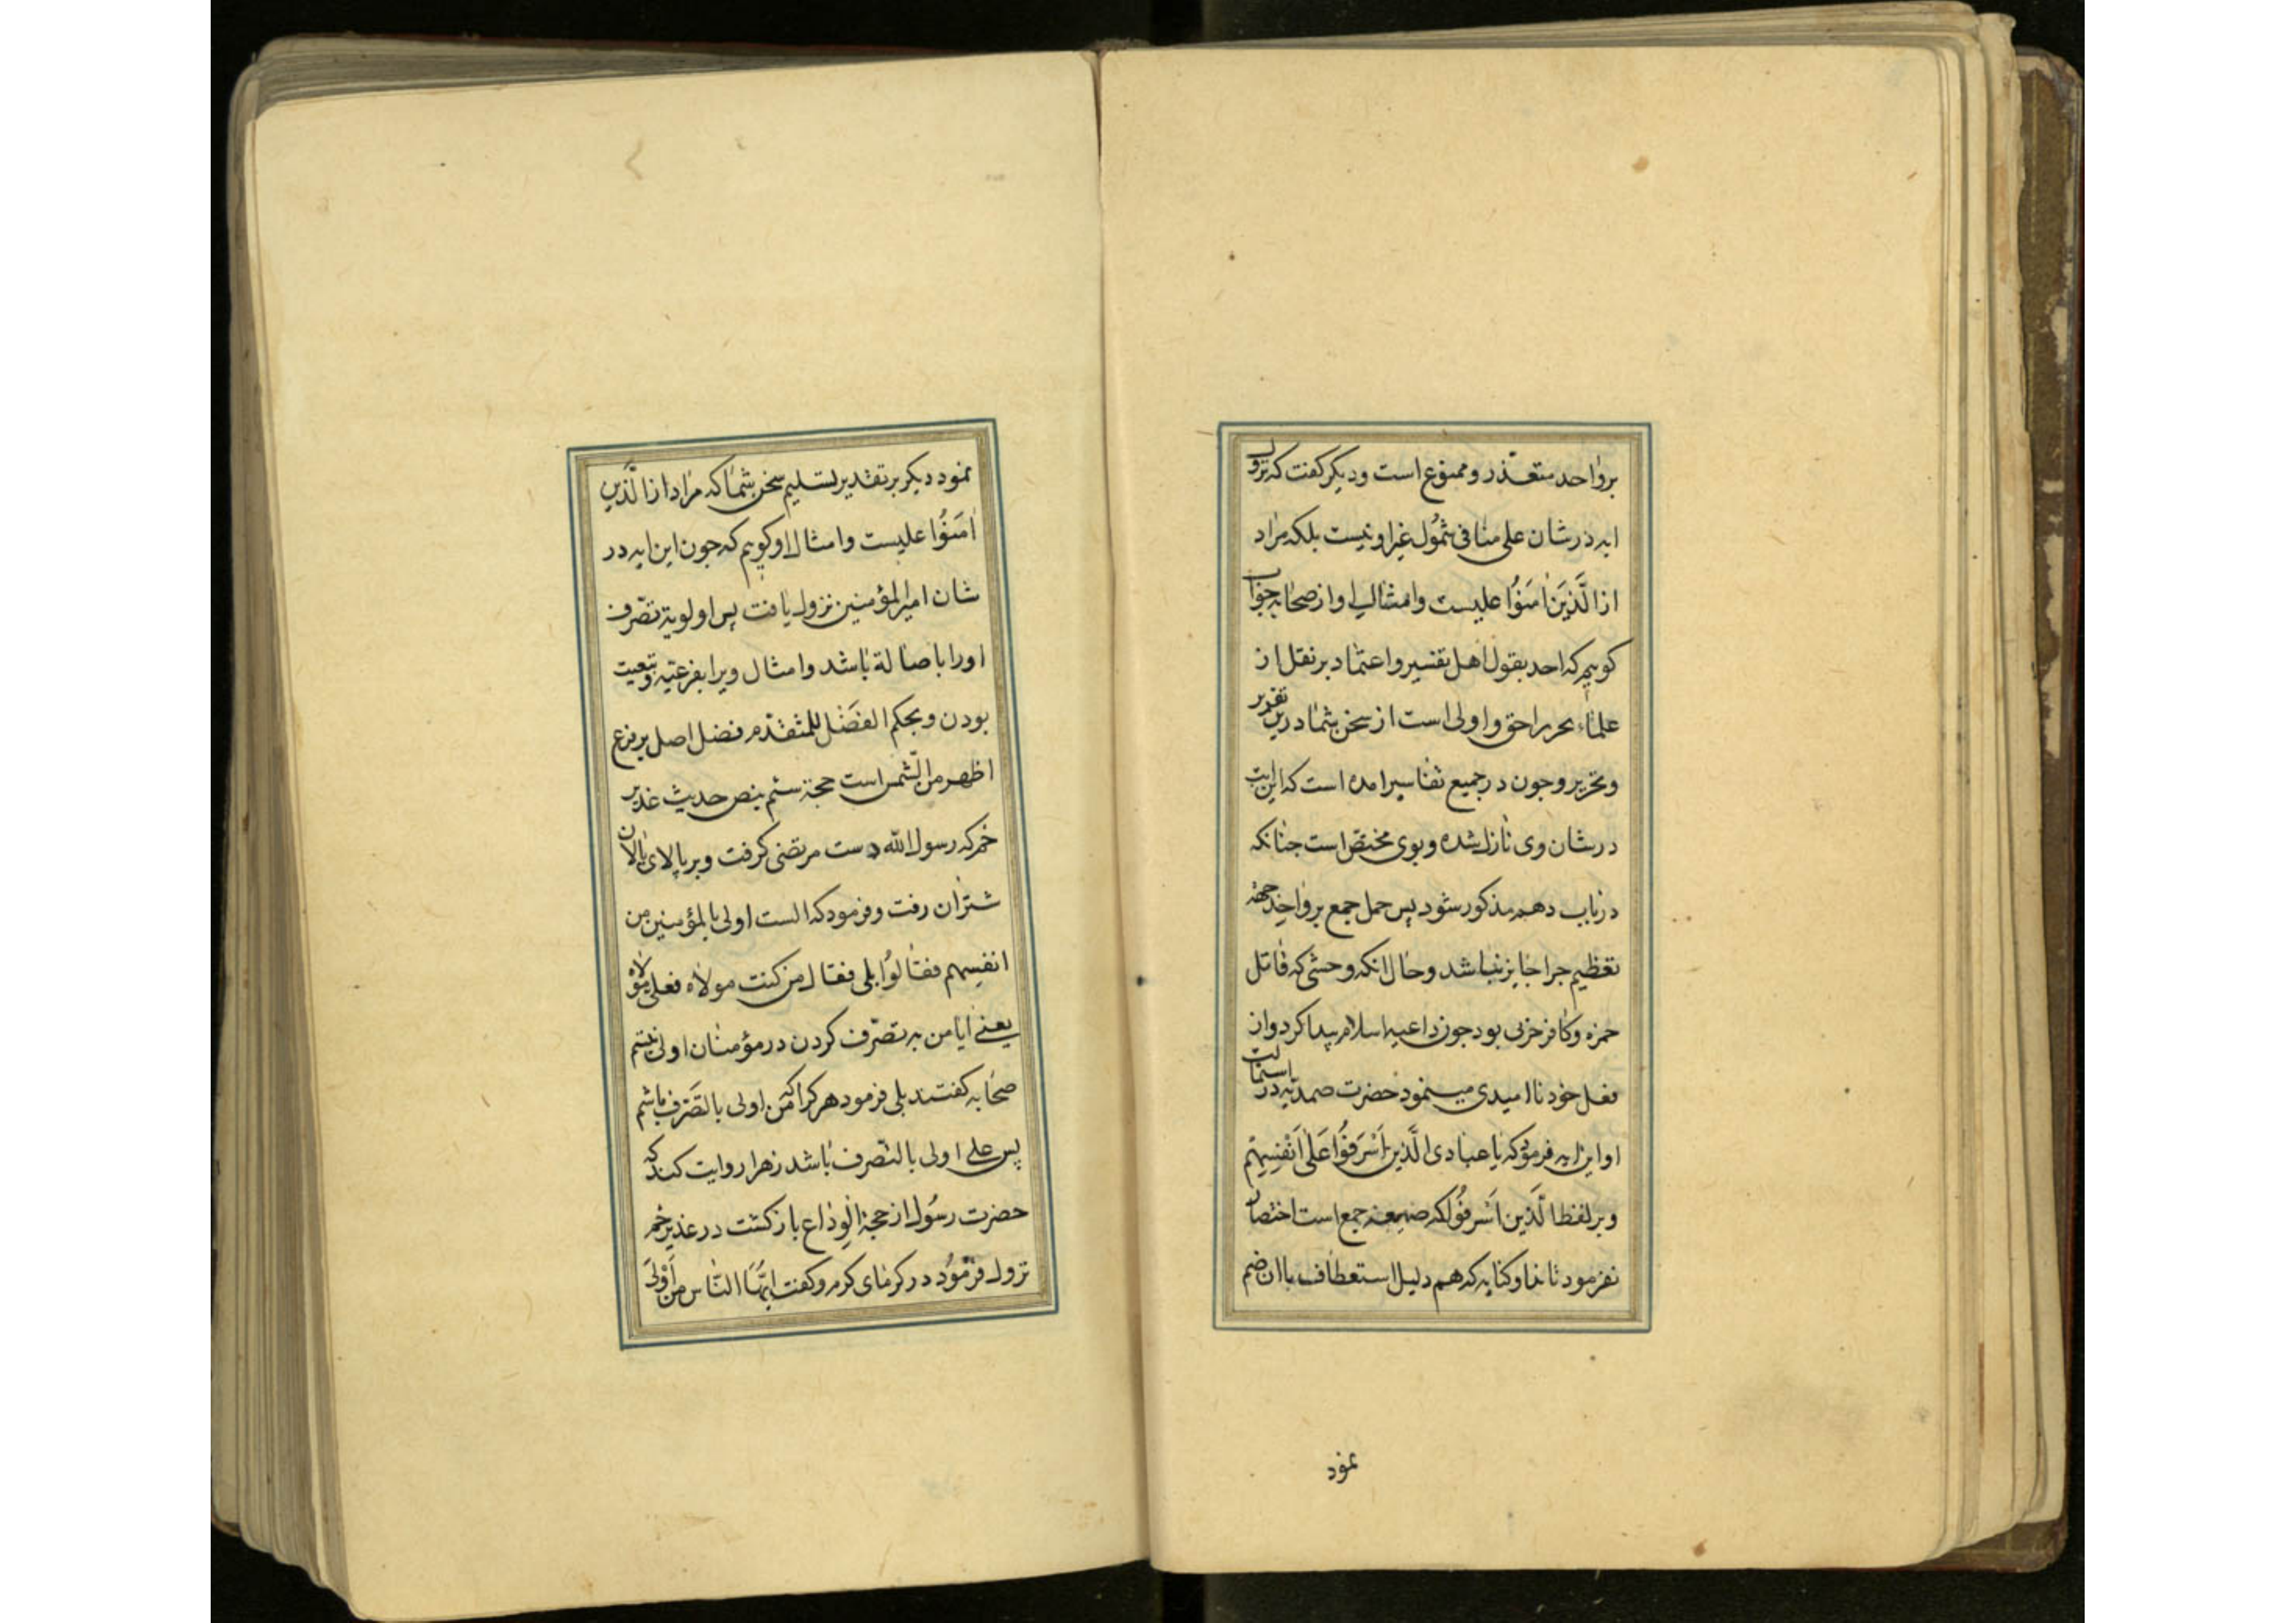 بر واحد متعذر و ممنوع است و دیکر کفت که نزول
ایه در شان علی منافی شمول غیر او نیست بلکه مراد
از الَّذینَ اٰمَنُوا علیست و امثال او از صحابه جواب
کوییم که اخذ بقول اهل تفسیر و اعتماد بر نقل از
علماء نحریر احق و اولی است از سخن شما درین تقدیر
و تحریر و جون در جمیع تفاسیر امده است که این ایت
در شان وی نازل شده و بوی مختص است جنانکه
در باب دهم مذکور شود پس حمل جمع بر واحد جهة
تعظیم جرا جایز نباشد و حال انکه وحشی که قاتل
حمزه و کافر حربی بود جون داعیه اسلام پیدا کرد و از
فعل خود ناامیدی مینمود حضرت صمدیه در استمالت
او این ایه فرمود که یا عبادی الَّذین اَسْرَفُوا عَلٰی اَنْفُسِهِمْ
و بر لفظ الَّذین اَسْرفُوا که صیغه جمع است اختصار
نفرمود تا ندا و کنایه که هم دلیل استعطاف باان ضم
نمود
نمود دیکر بر تقدیر تسلیم سخن شما که مراد از الَّذین
اٰمَنُوا علیست و امثال او کوییم که جون این ایه در
شان امیر المؤمنین نزول یافت پس اولویة تصرّف
او را باصالة باشد و امثال ویرا بفرعیّه و تبعیت
بودن و بحکم الفَضْل للمتقدّم فضل اصل بر فرع
اظهر من الشّمس است حجة ستم بنص حدیث غدیر
خم که رسول الله دست مرتضی کرفت و بر بالای پالان
شتران رفت و فرمود که الست اولی بالمؤمنین من
انفسهم فقالوُا بلی فقال من کنت مولاه فعلی مولاه
یعنے ایا من به تصرّف کردن در مؤمنان اولی نیستم
صحابه کفتند بلی فرمود هر کرا که من اولی بالتصَرّف باشم
پس علی اولی بالتصرف باشد زهرا روایت کند که
حضرت رسُول از حجة الوداع باز کشت در غدیر خم
نزول فرمُود در کرمای کرم و کفت ایُّهَا النّاس من اَوْلیٰ